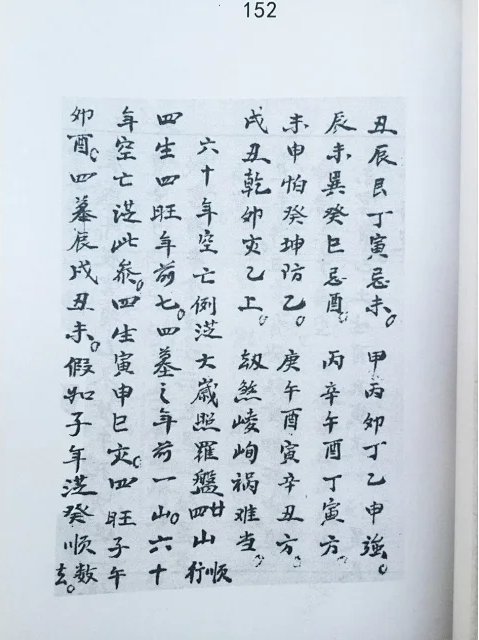 152
丑辰艮丁寅忌未。甲丙卯丁乙申強。
辰未巽癸巳忌酉。丙辛午酉丁寅方。
未申怕癸坤防乙。庚午酉寅辛丑方。
戌丑乾卯灾乙上。劫煞崚峋祸难当。
六十年空亡例 从大歲照羅盤廿四山順行
四生四旺年前七。四墓之年前一山。六十
年空亡从此叅。四生寅申巳亥。四旺子午
卯酉。四墓辰戌丑未。假如子年从癸顺数去。